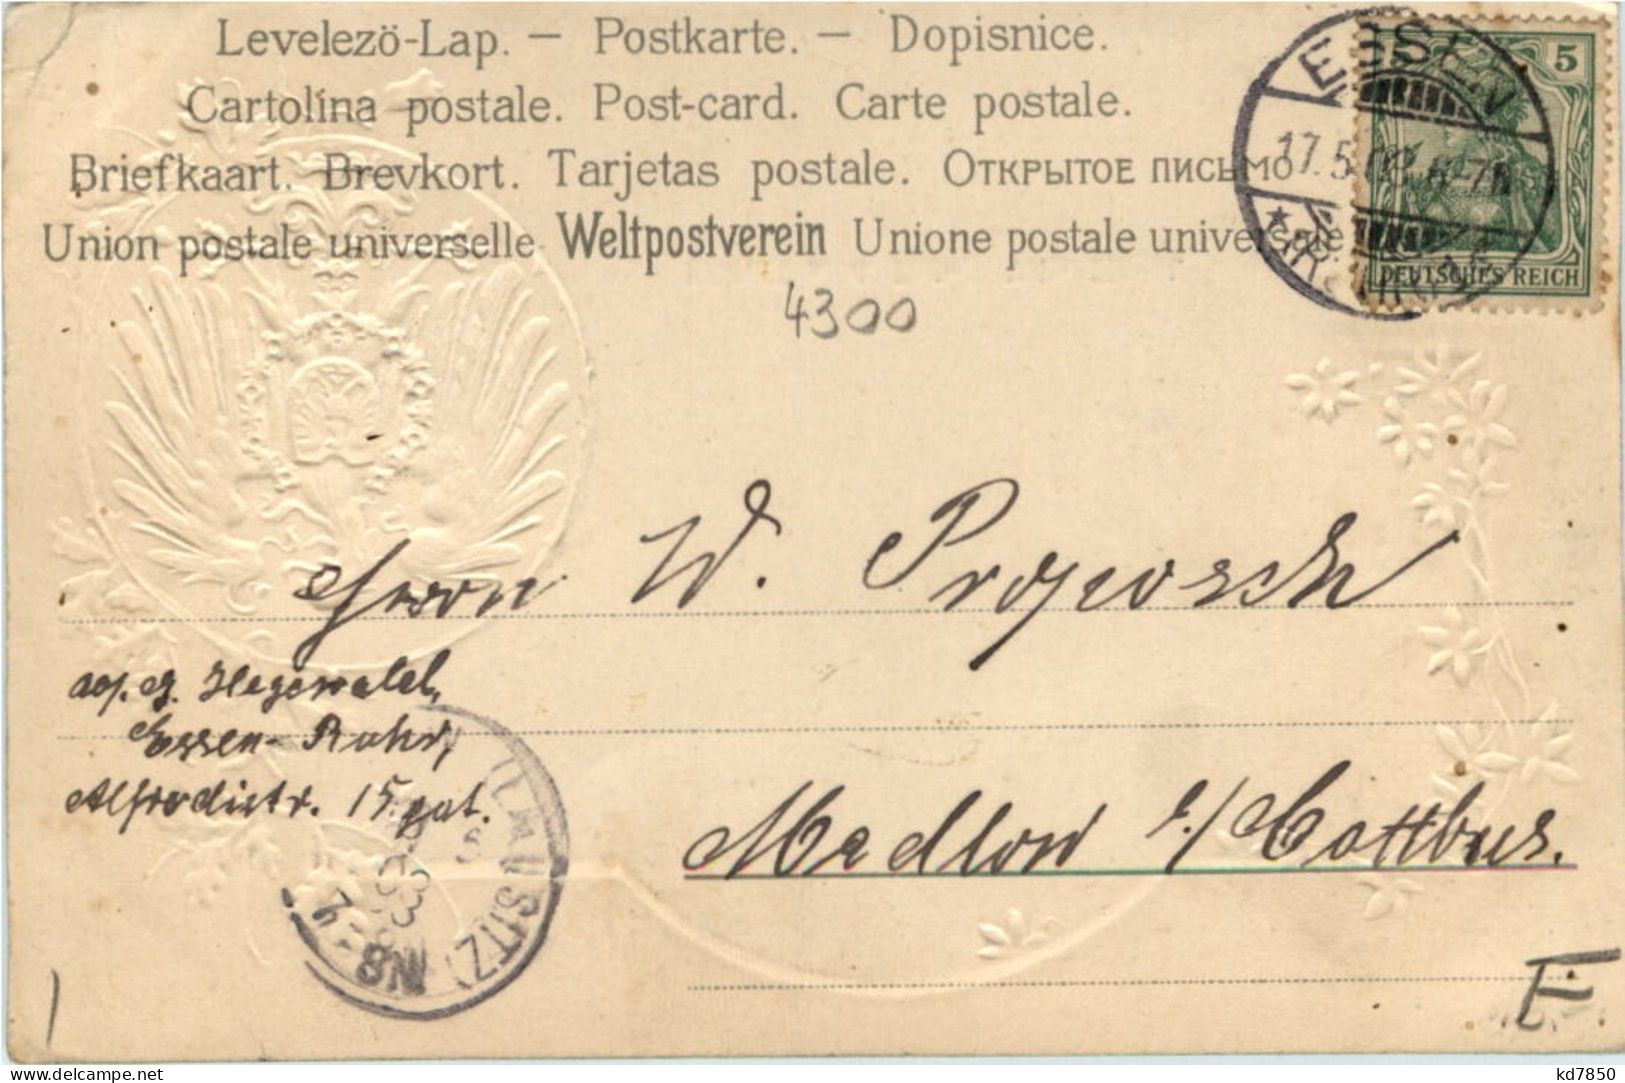 Levelezö-Lap. — Postkarte. — Dopisnice.
Cartolina postale. Post-card. Carte postale.
Briefkaart. Brevkort. Tarjetas postale. Открытое письмо
Union postale universelle Weltpostverein Unione postale universale
ESSEN
17.5. 6-7N
5
DEUTSCHES REICH
4300
Herrn W.
Abs. G. Hegewald,
Essen-Ruhr,
Alfredistr. 15. pat.
Madlow b/Cottbus.
(LAUSITZ)
7-8N
E
kd7850